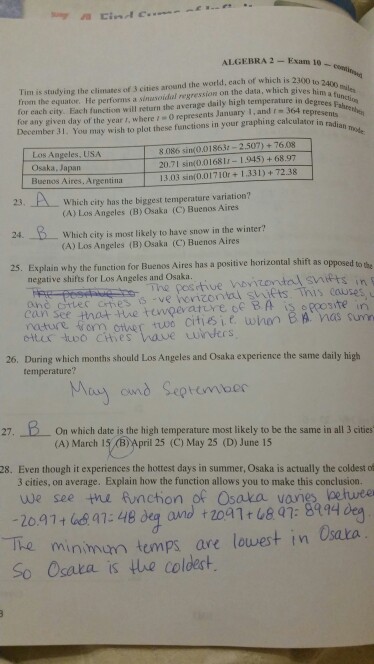 Find
ALGEBRA 2 — Exam 10 — continued
Tim is studying the climates of 3 cities around the world, each of which is 2300 to 2400 miles
from the equator. He performs a sinusoidal regression on the data, which gives him a function
for each city. Each function will return the average daily high temperature in degrees Fahrenheit
for any given day of the year t, where t = 0 represents January 1, and t = 364 represents
December 31. You may wish to plot these functions in your graphing calculator in radian mode.
Los Angeles, USA 8.086 sin(0.01863t − 2.507) + 76.08
Osaka, Japan 20.71 sin(0.01681t − 1.945) + 68.97
Buenos Aires, Argentina 13.03 sin(0.01710t + 1.331) + 72.38
23. A Which city has the biggest temperature variation?
(A) Los Angeles (B) Osaka (C) Buenos Aires
24. B Which city is most likely to have snow in the winter?
(A) Los Angeles (B) Osaka (C) Buenos Aires
25. Explain why the function for Buenos Aires has a positive horizontal shift as opposed to the
negative shifts for Los Angeles and Osaka.
The positive is The positive horizontal shifts in
and other cities a -ve horizontal shifts. This causes,
can see that the temperature of B.A is opposite in
nature from other two cities i.e when B.A has summ
other two cities have winters.
26. During which months should Los Angeles and Osaka experience the same daily high
temperature?
May and September
27. B On which date is the high temperature most likely to be the same in all 3 cities
(A) March 15 (B) April 25 (C) May 25 (D) June 15
28. Even though it experiences the hottest days in summer, Osaka is actually the coldest of
3 cities, on average. Explain how the function allows you to make this conclusion.
We see the function of Osaka varies between
-20.97 + 68.97 = 48 deg and +20.97 + 68.97 = 89.94 deg.
The minimum temps are lowest in Osaka.
So Osaka is the coldest.